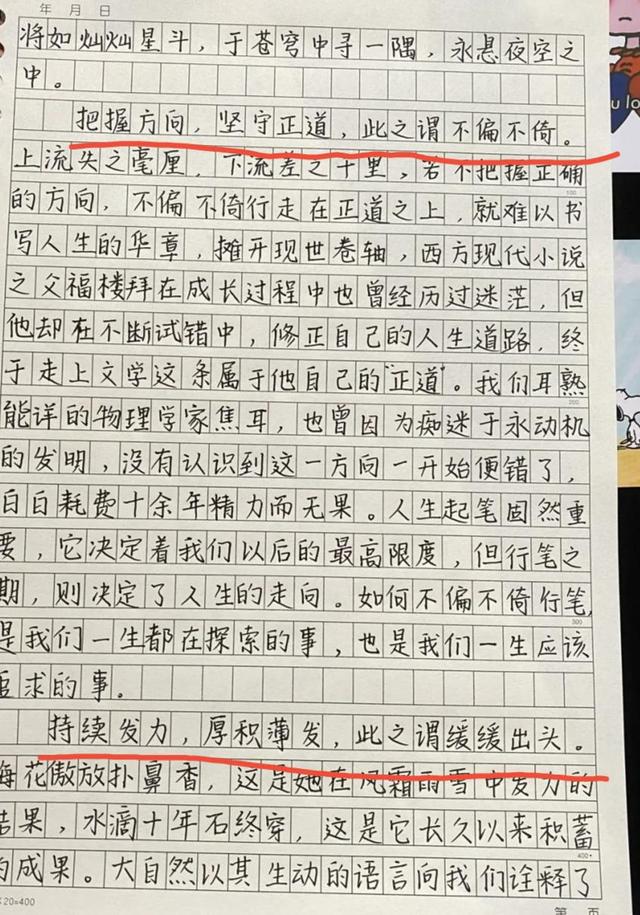 年 月 日
将如灿灿星斗，于苍穹中寻一隅，永悬夜空之
中。
把握方向，坚守正道，此之谓不偏不倚。
上流失之毫厘，下流差之千里，若不把握正确
100
的方向，不偏不倚行走在正道之上，就难以书
写人生的华章，摊开现世卷轴，西方现代小说
之父福楼拜在成长过程中也曾经历过迷茫，但
他却在不断试错中，修正自己的人生道路，终
于走上文学这条属于他自己的"正道"。我们耳熟
200
能详的物理学家焦耳，也曾因为痴迷于永动机
的发明，没有认识到这一方向一开始便错了，
白白耗费十余年精力而无果。人生起笔固然重
要，它决定着我们以后的最高限度，但行笔之
期，则决定了人生的走向。如何不偏不倚行笔，
300
是我们一生都在探索的事，也是我们一生应该
追求的事。
持续发力，厚积薄发，此之谓缓缓出头。
梅花傲放扑鼻香，这是她在风霜雨雪中发力的
结果，水滴十年石终穿，这是它长久以来积蓄
400
的成果。大自然以其生动的语言向我们诠释了
×20=400
第 页
u lo